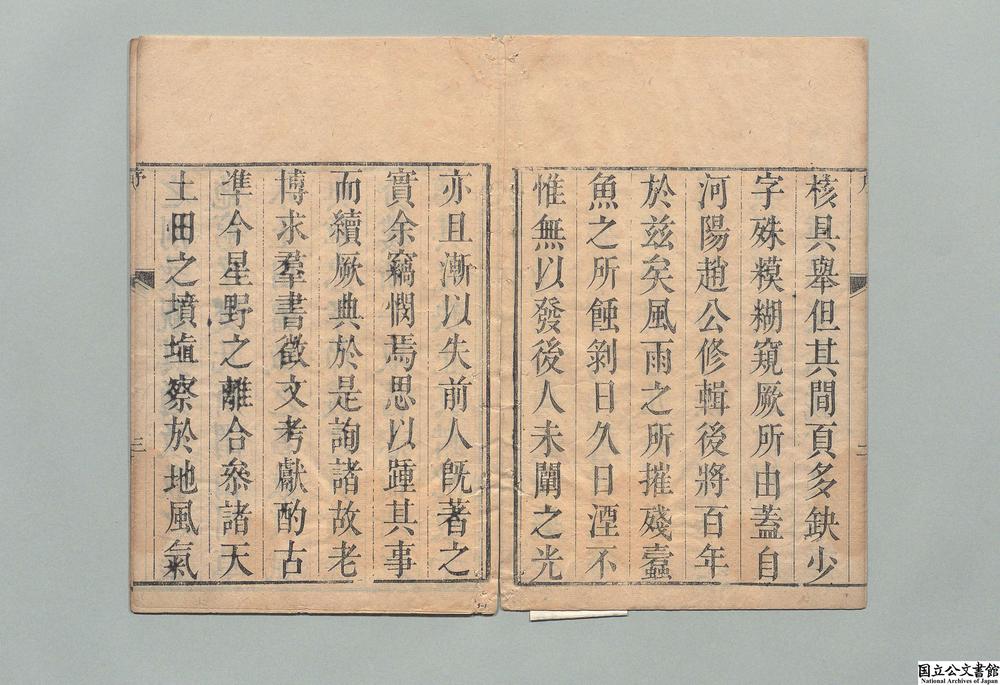 核具舉但其間頁多缺少
字殊糢糊窺厥所由蓋自
河陽趙公修輯後將百年
於兹矣風雨之所摧殘蠹
魚之所蝕剝日久日湮不
惟無以發後人未闡之光
亦且漸以失前人旣著之
實余竊憫焉思以踵其事
而續厥典於是詢諸故老
博求羣書徵文考獻酌古
準今星野之離合叅諸天
土田之墳埴察於地風氣
序
三
国立公文書館
National Archives of Japan